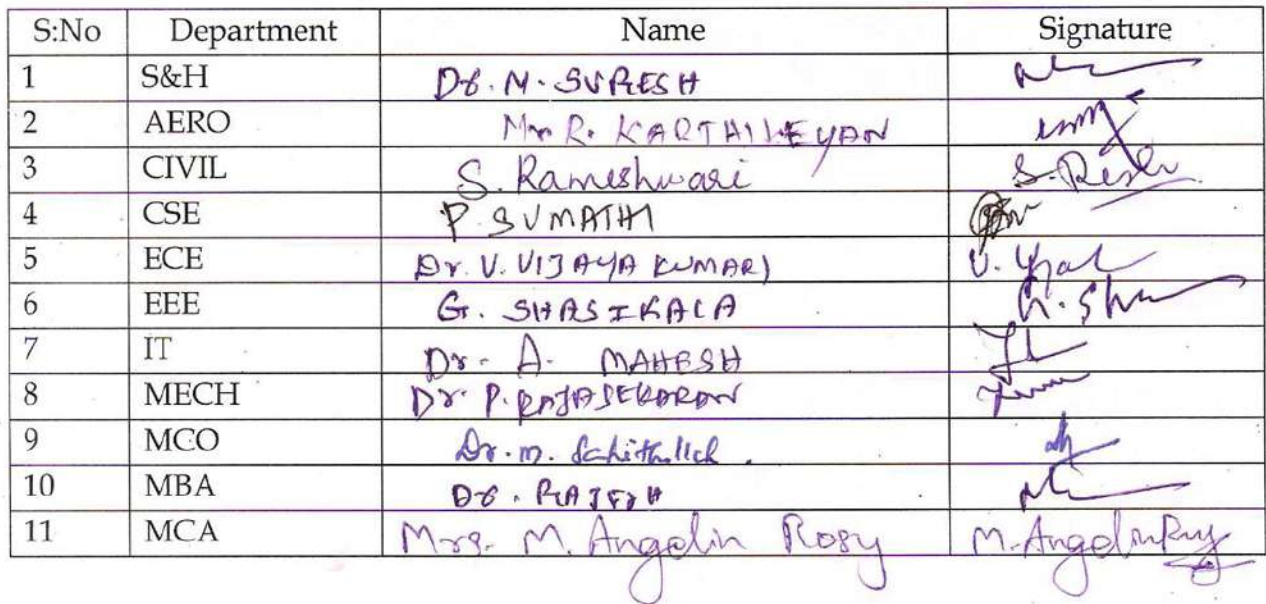 S:No Department Name Signature
1 S&H Dr. M. SURESH
2 AERO Mr R. KARTHIKEYAN
3 CIVIL S. Rameshwari
4 CSE P. SUMATHI
5 ECE Dr. V. VIJAYA KUMARI
6 EEE G. SHASIKALA
7 IT Dr. A. MAHESH
8 MECH Dr. P. RAJASEKARAN
9 MCO Dr. m.
10 MBA Dr. RAJESH
11 MCA Mrs. M. Angelin Rosy M. Angelin Rosy